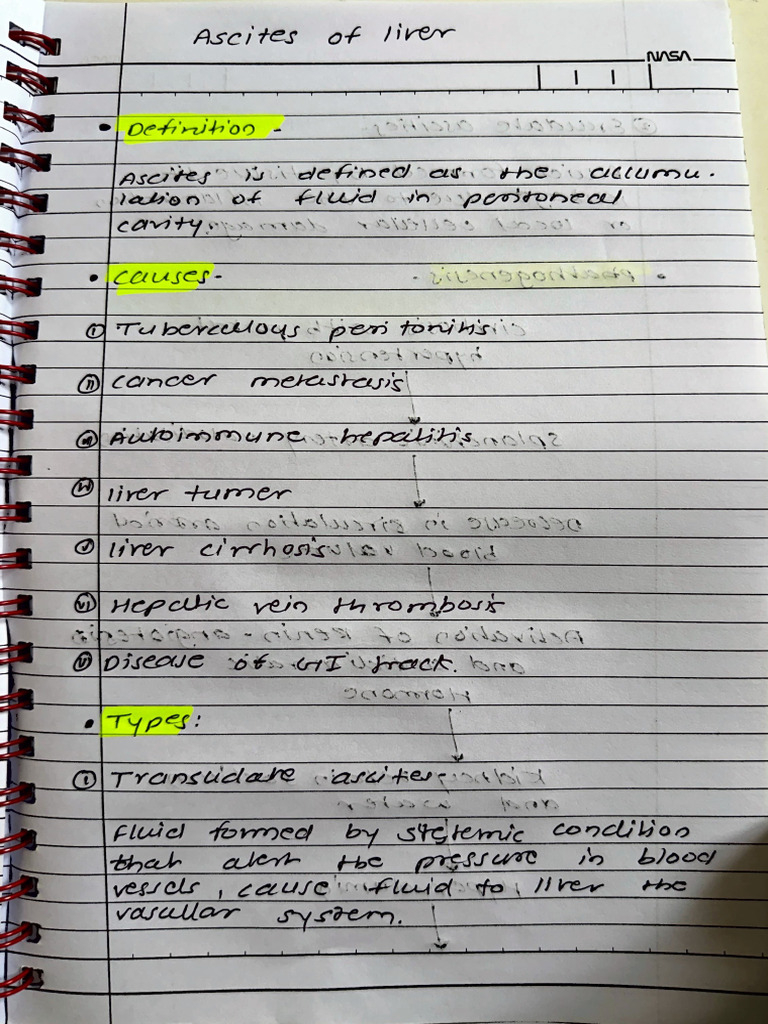 Ascites of liver
NASA
• Definition -
Ascites is defined as the accumu.
lation of fluid in peritoneal
cavity.
• causes -
(i) Tuberculous peritonitis
(ii) cancer metastasis
(iii) Autoimmune hepatitis
(iv) liver tumer
(v) liver cirrhosis
(vi) Hepatic vein thrombosis
(vii) Disease of GI track.
• Types:
(1) Transudate ascites
fluid formed by systemic condition
that alert the pressure in blood
vessels, cause fluid to liver the
vascullar system.